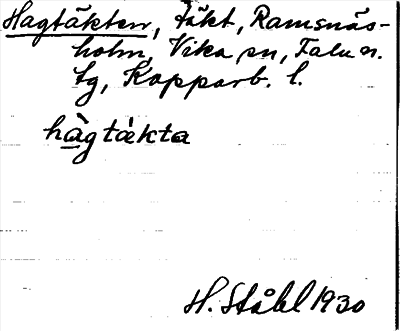 Hagtäkten, täkt, Ramsnäs-
holm, Vika sn, Falu n.
tg, Kopparb. l.
hàgtàkta
H. Ståhl 1930